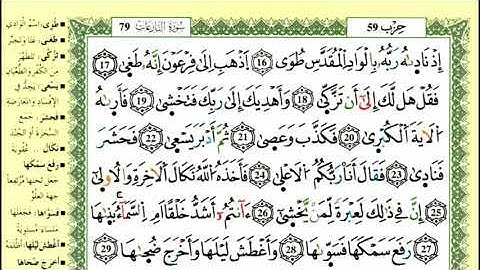 حزب 59
سورة النازعات 79
إذ ناديه ربه بالواد المقدس طوى 16 اذهب إلى فرعون إنه طغى 17
فقل هل لك إلى أن تزكى 18 وأهديك إلى ربك فتخشى 19 فأريه
الآية الكبرى 20 فكذب وعصى 21 ثم أدبر يسعى 22 فحشر
فنادى 23 فقال أنا ربكم الأعلى 24 فأخذه الله نكال الآخرة والأولى
25 إن في ذلك لعبرة لمن يخشى 26 ءأنتم أشد خلقا أم السماء بنيها
27 رفع سمكها فسويها 28 وأغطش ليلها وأخرج ضحيها 29
طوى: اسم الوادي
طغى: عتا وتجبر
تزكى: تتطهر
من الكفر والطغيان
يسعى: يجد في
الإفساد والمعارضة
فحشر: جمع
السحرة أو الجند
نكال: عقوبة
رفع سمكها:
جعل ثخنها مرتفعا
جهة العلو
فسواها: فجعلها
أغطش ليلها: أظلمه
أخرج ضحاها